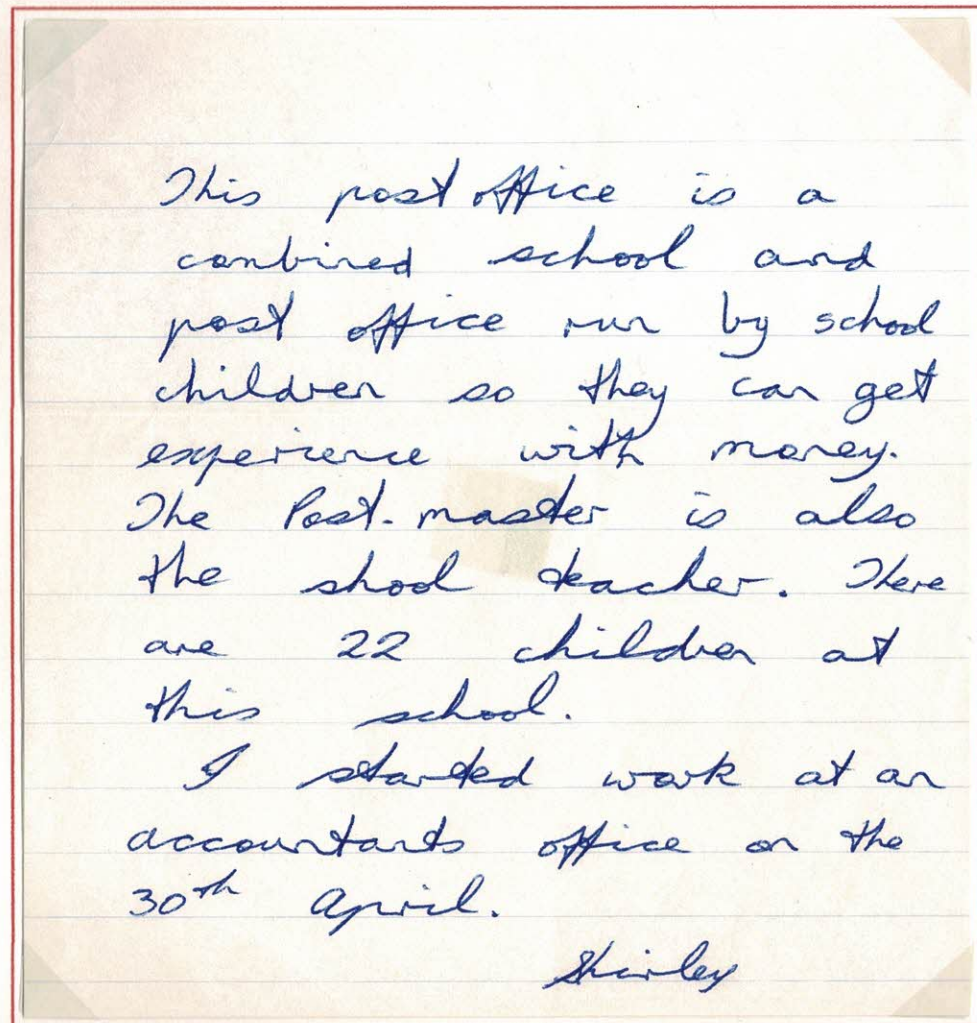 This post office is a
combined school and
post office run by school
children so they can get
experience with money.
The Post-master is also
the shool teacher. There
are 22 children at
this school.
I started work at an
accountants office on the
30th April.
Shirley